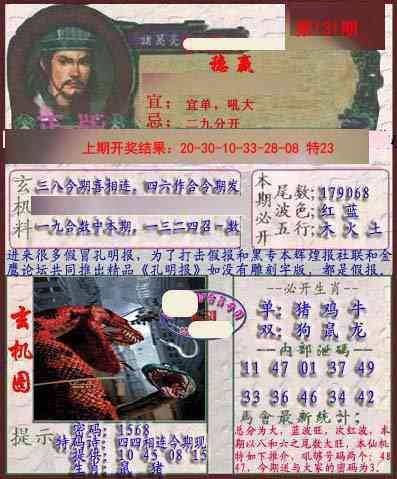 第131期
諸葛亮
稳赢
宜：宜单，吼大
忌：二九分开
上期开奖结果：20-30-10-33-28-08 特23
玄机料
三八今期喜相连，四六作合今期发
一九合数中本期，一三二四召一数
本期必开
尾数:179068
波色:红 蓝
五行:木 火 土
进来很多假冒孔明报，为了打击假报和黑专本辉煌报社联和金
鹰论坛共同推出精品《孔明报》如没有雕刻字版，都是假报。
玄机图
--必开生肖--
单:猪 鸡 牛
双:狗 鼠 龙
--内部泄码--
11 47 01 37 49
33 36 46 34 42
馬會最新統計:
总分为大，蓝波旺，次红波，本
期以八和六之尾数大旺，本仙机
特如下推介，吼够号码两个：48
47，今期送与大家的密码为3.
提示
密码:1568
特码诗:四四相连今期现
提供:10 45 08 15
生肖:鼠 猪